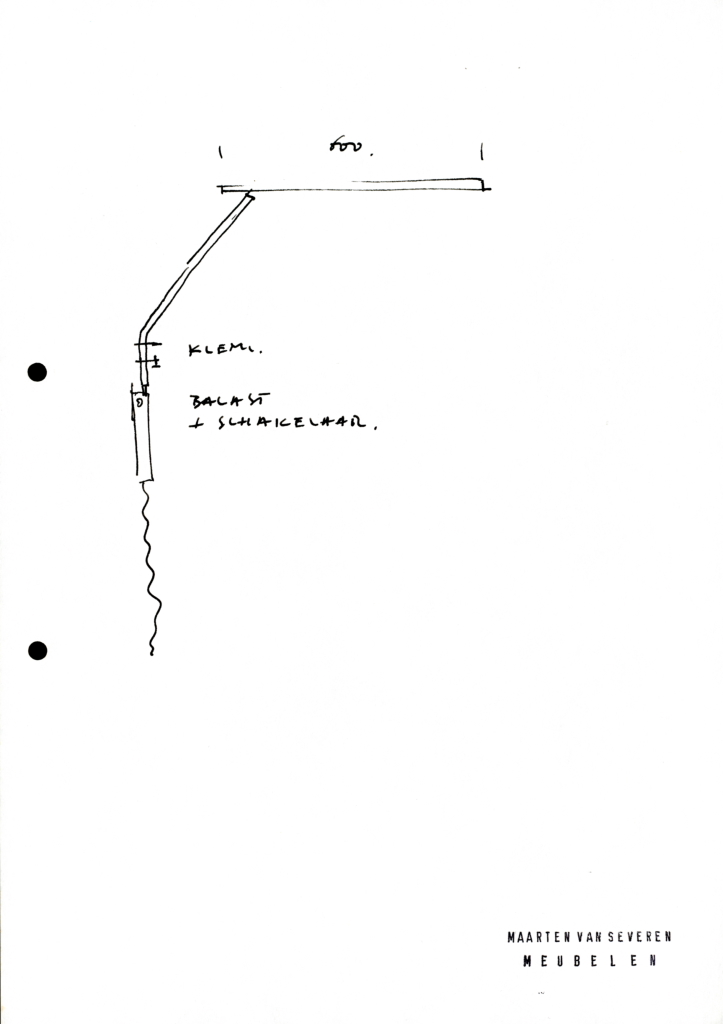 600.
KLEM.
BALAST
+ SCHAKELAAR.
MAARTEN VAN SEVEREN
MEUBELEN